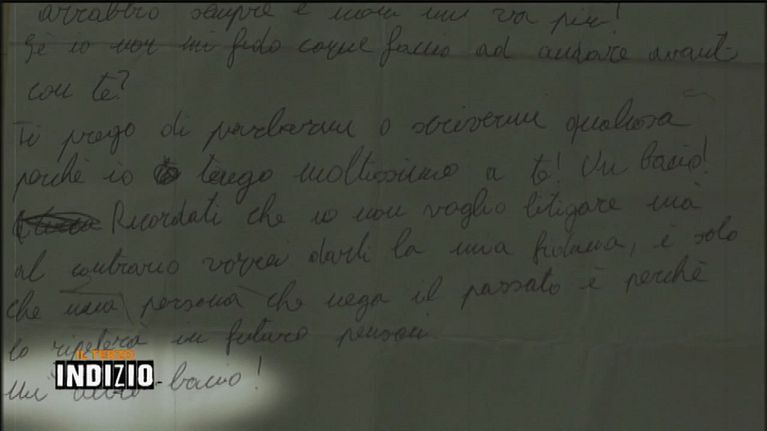 arrabbio sempre e non mi va più!
Se io non mi fido come faccio ad andare avanti
con te?
Ti prego di parlarmi o scrivermi qualcosa
perchè io tengo moltissimo a te! Un bacio!
Ricordati che io non voglio litigare mà
al contrario vorrei darti la mia fiducia, è solo
che una persona che nega il passato è perchè
lo ripeterà in futuro pensaci
IL TERZO
INDIZIO
Un altro bacio!